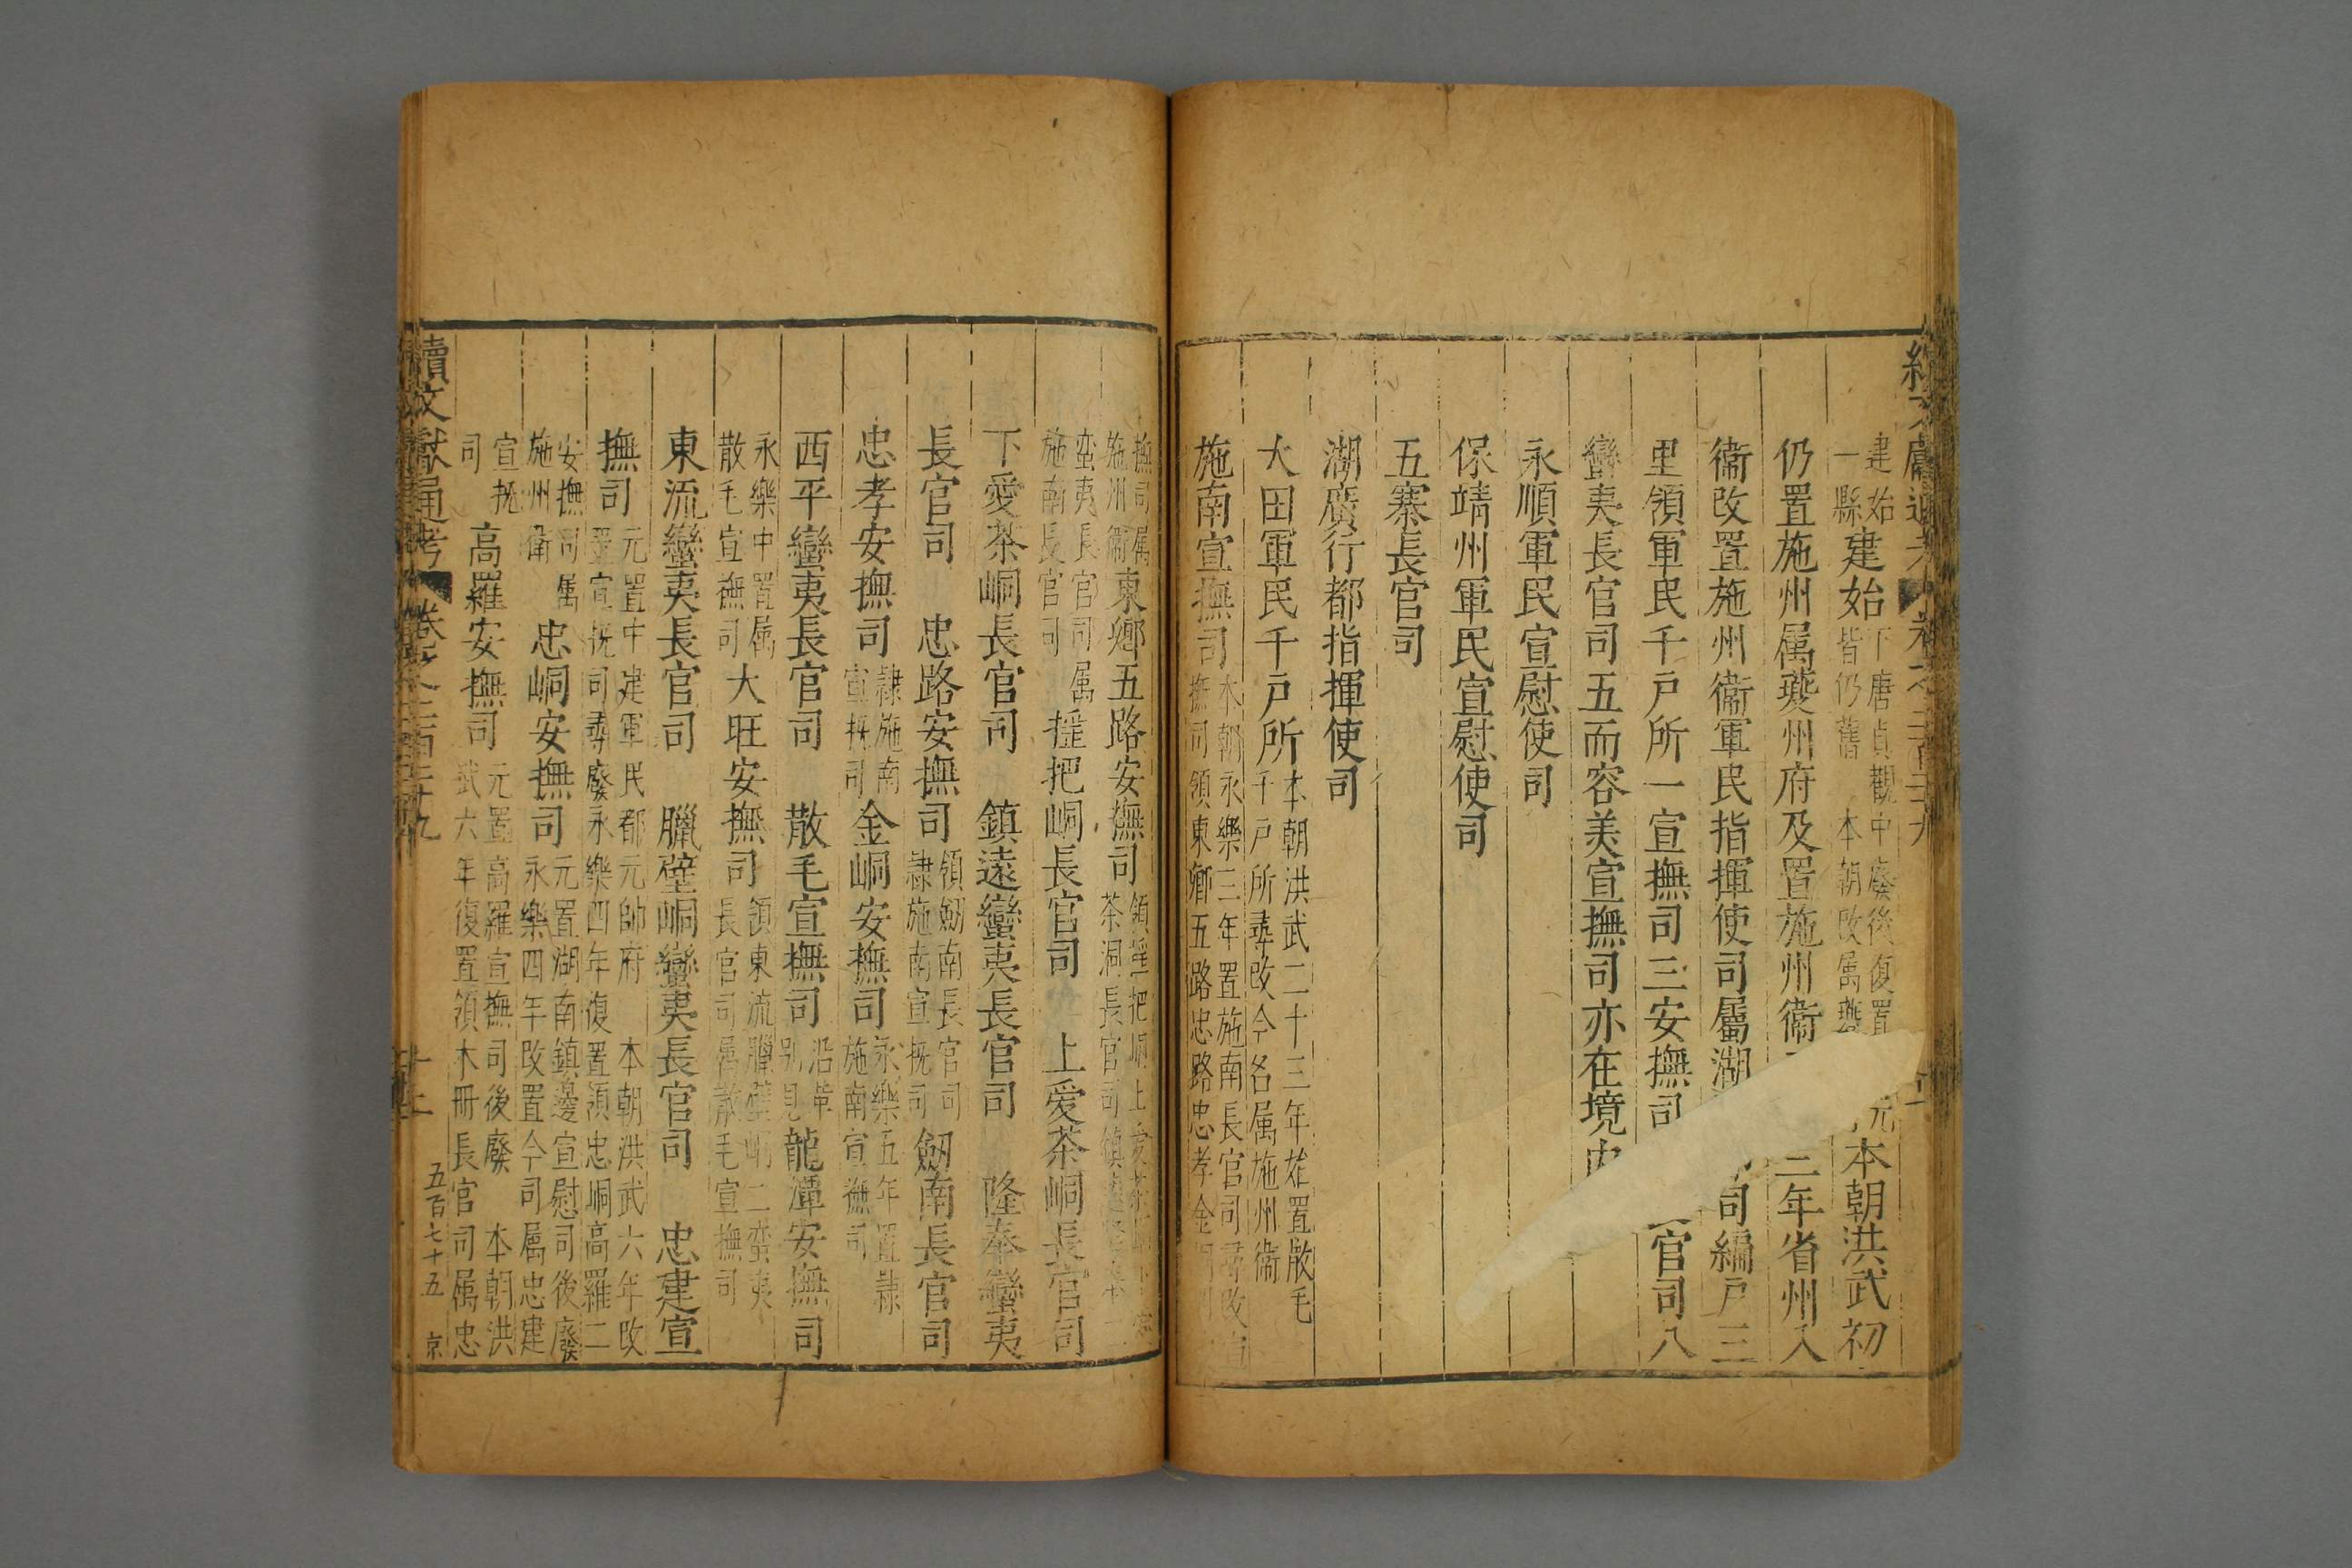 建始建始下唐貞觀中廢後復置
一縣皆仍舊 本朝改属夔 本朝洪武初
仍置施州属夔州府及置施州衞 二年省州入
衞改置施州衞軍民指揮使司屬湖 司編戸三
里領軍民千戸所一宣撫司三安撫司 官司八
蠻夷長官司五而容美宣撫司亦在境内
永順軍民宣慰使司
保靖州軍民宣慰使司
五寨長官司
湖廣行都指揮使司
大田軍民千戸所本朝洪武二十三年始置散毛
千戸所尋改今名属施州衞
施南宣撫司本朝永樂三年置施南長官司尋改
撫司領東鄉五路忠路忠孝金
撫司属
施州衞東鄉五路安撫司領搖把峒上愛茶
茶洞長官司鎮遠
蛮夷長官司属
施南長官司 搖把峒長官司 上愛茶峒長官司
下愛茶峒長官司 鎮遠蠻夷長官司 隆奉蠻夷
長官司 忠路安撫司領劒南長官司
隷施南宣抚司 劒南長官司
忠孝安撫司隷施南
宣抚司 金峒安撫司永樂五年置隷
施南宣撫司
西平蠻夷長官司 散毛宣撫司沿革
别見 龍潭安撫司
永樂中置属
散毛宣撫司 大旺安撫司領東流臘壁峒二蛮夷
長官司属散毛宣撫司
東流蠻夷長官司 臘壁峒蠻夷長官司 忠建宣
撫司元置中建軍民都元帥府 本朝洪武六年改
置宣抚司尋廢永樂四年復置領忠峒高羅二
安撫司属
施州衞 忠峒安撫司元置湖南鎮邊宣慰司後廢
永樂四年改置今司屬忠建
宣抚
司 高羅安撫司元置高羅宣撫司後廢 本朝洪
武六年復置領木冊長官司属忠
續文獻通考 卷之二百三十九 十二 五百七十五 京